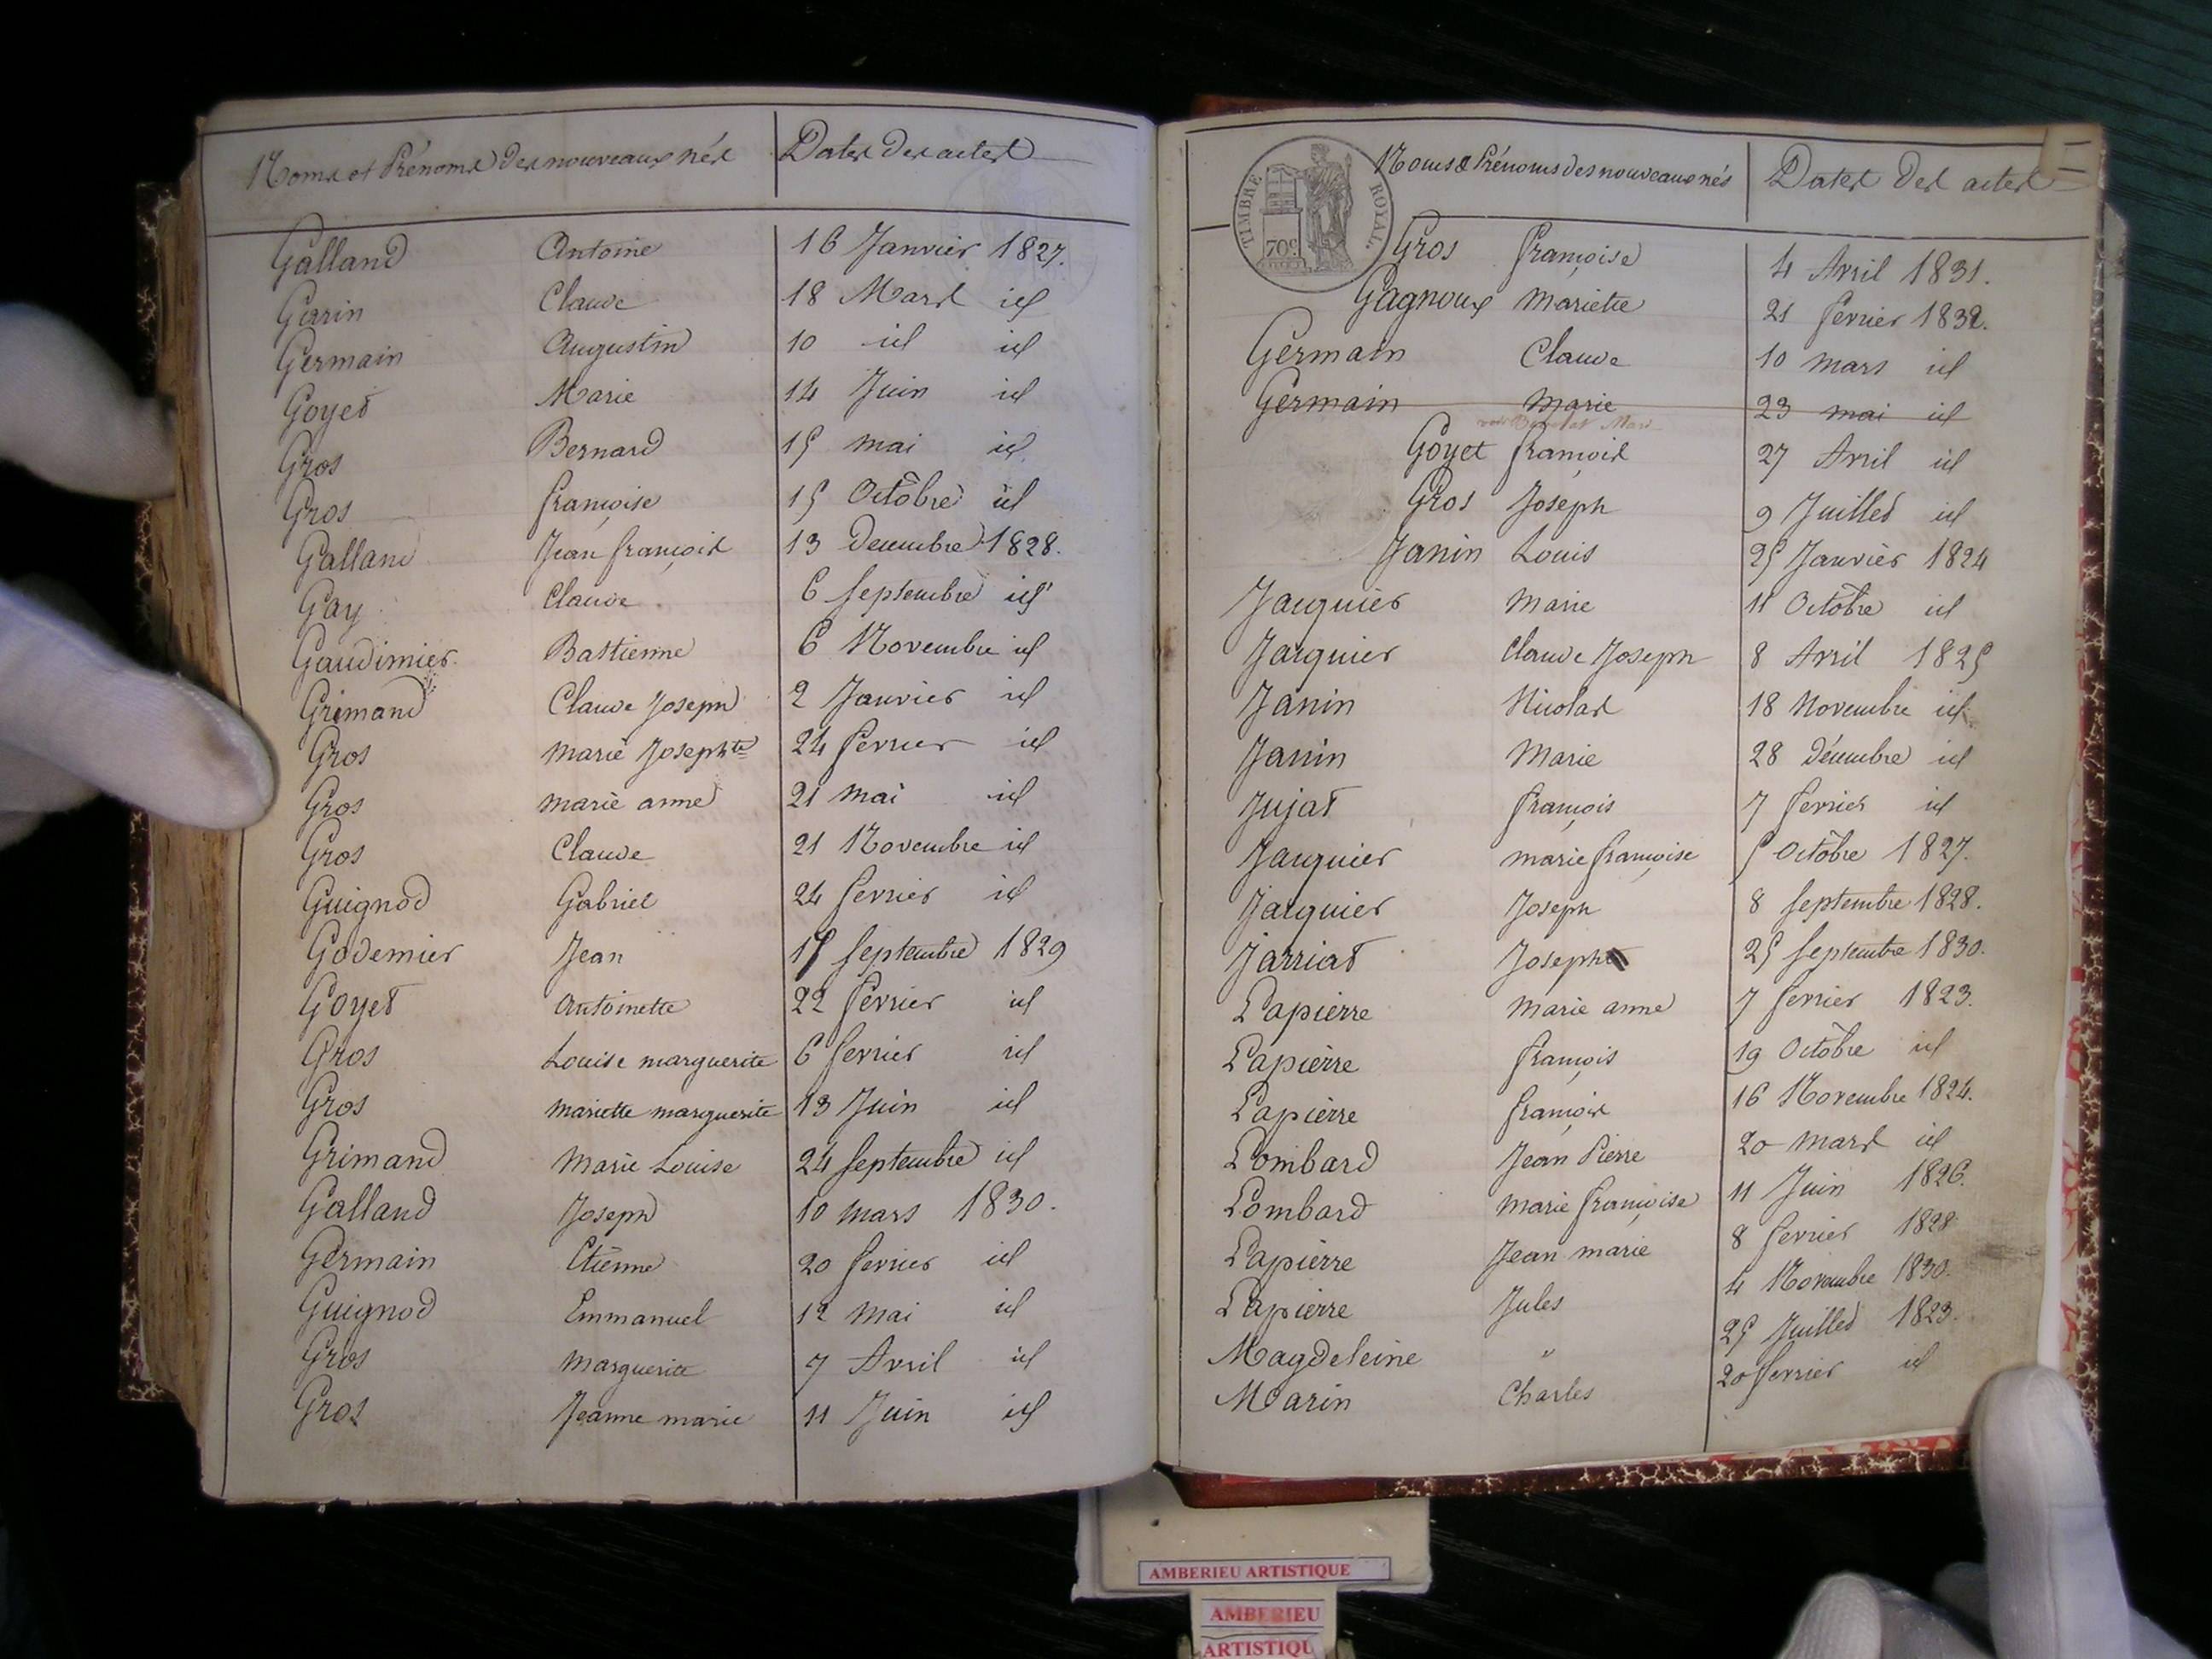 Noms et Prénoms des nouveaux nés Dates des actes
Galland Antoine 16 Janvier 1827.
Garin Claude 18 Mars id
Germain Augustin 10 id id
Goyet Marie 14 Juin id
Gros Bernard 15 mai id
Gros françoise 15 Octobre id
Galland Jean françois 13 Decembre 1828.
Gay Claude 6 Septembre id
Gaudimier Bastienne 6 Novembre id
Grimand Claude Joseph 2 Janvier id
Gros Marie Josephte 24 fevrier id
Gros marie anne 21 mai id
Gros Claude 21 Novembre id
Guignod Gabriel 24 fevrier id
Godemier Jean 15 Septembre 1829
Goyet Antoinette 22 février id
Gros Louise marguerite 6 fevrier id
Gros mariette marguerite 13 Juin id
Grimand Marie Louise 24 Septembre id
Galland Joseph 10 mars 1830.
Germain Etienne 20 fevrier id
Guignod Emmanuel 12 Mai id
Gros Marguerite 7 Avril id
Gros Jeanne marie 11 Juin id
TIMBRE ROYAL.
70c
Noms & Prénoms des nouveaux nés Dates des actes
Gros françoise 4 Avril 1831.
Gagnoux Mariette 21 fevrier 1832.
Germain Claude 10 mars id
Germain Marie 23 mai id
Goyet françois 27 Avril id
Gros Joseph 9 Juillet id
Janin Louis 25 Janvier 1824
Jacquier Marie 11 Octobre id
Jacquier Claude Joseph 8 Avril 1825
Janin Nicolas 18 Novembre id
Janin Marie 28 décembre id
Jujat françois 7 fevrier id
Jacquier marie françoise 5 Octobre 1827.
Jacquier Joseph 8 Septembre 1828.
Jarriat Joseph 25 Septembre 1830.
Lapierre Marie anne 7 fevrier 1823.
Lapierre françois 19 Octobre id
Lapierre françois 16 Novembre 1824.
Lombard Jean Pierre 20 mars id
Lombard Marie françoise 11 Juin 1826.
Lapierre Jean marie 8 fevrier 1828
Lapierre Jules 4 Novembre 1830.
Magdeleine " 25 Juillet 1823.
Marin Charles 20 fevrier id
AMBERIEU ARTISTIQUE
AMBERIEU
ARTISTIQU